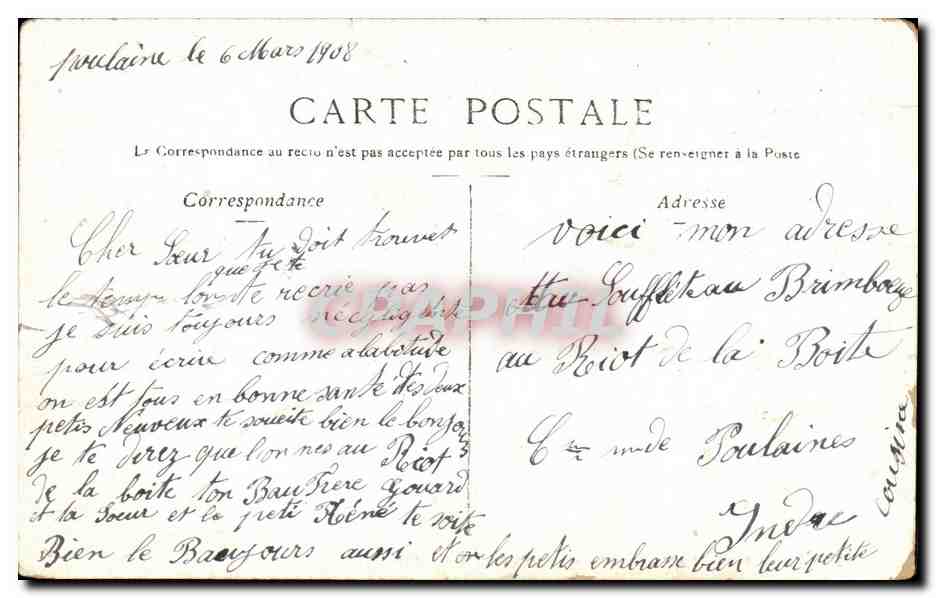 poulaine le 6 Mars 1908
CARTE POSTALE
La Correspondance au recto n'est pas acceptée par tous les pays étrangers (Se renseigner à la Poste
Correspondance
Cher Sœur tu doit trouver
que je te
le temp lon te recrie pas
je suis toujours negligente
pour écrire comme alabitude
on est tous en bonne santé tes deux
petis Neuveux te soucite bien le bonjo
je te direz que l'on nes au Riot
de la boite ton Bau Frere Gouard
et ta Sœur et le peti Réné te soite
Bien le Baujours aussi et les petis embrasse bien leur petite
cousine
Adresse
voici mon adresse
Souffléteau Brimborge
au Riot de la Boite
Cne de Poulaines
Indre
CPAPHIL